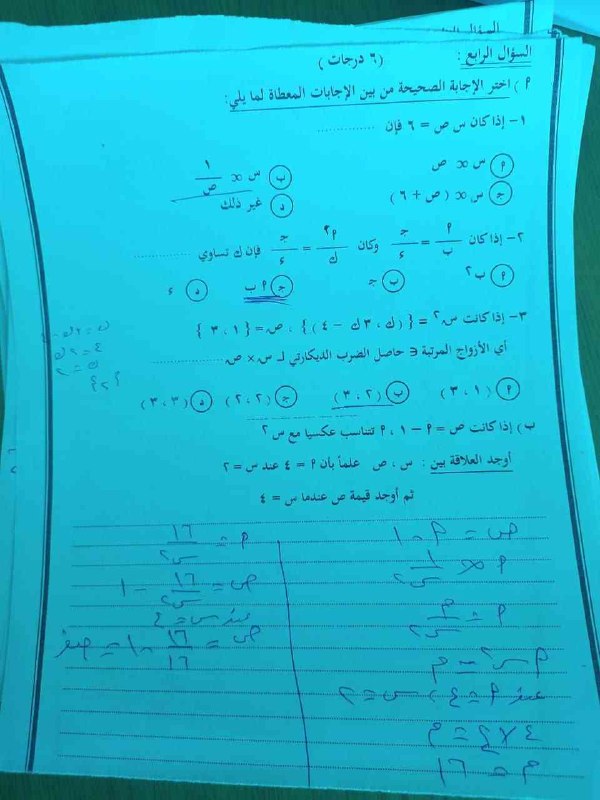 السؤال الرابع : ( ٦ درجات )
٢ ) اختر الإجابة الصحيحة من بين الإجابات المعطاة لما يلي:
١- إذا كان س ص = ٦ فإن ............
(٢) س ∝ ص (ب) س ∝ ١/ص
(ج) س ∝ ( ص + ٦ ) (د) غير ذلك
٢- إذا كان ٢/ب = ج/ء وكان ٢٢/ك = ج/ء فإن ك تساوي ............
(٢) ب٢ (ب) ج (ج) ٢ ب (د) ء
٣- إذا كانت س٢ = { ( ك ، ٣ ك - ٤ ) } ، ص = { ١ ، ٣ }
أي الأزواج المرتبة ∋ حاصل الضرب الديكارتي لـ س × ص ............
(٢) ( ١ ، ٣ ) (ب) ( ٢ ، ٣ ) (ج) ( ٢ ، ٢ ) (د) ( ٣ ، ٣ )
ك = ٣ك - ٤
٤ = ٢ك
ك = ٢
{٢}
ب ) إذا كانت ص = ٢ - ١ ، ٢ تتناسب عكسيا مع س٢
أوجد العلاقة بين : س ، ص علماً بأن ٢ = ٤ عند س = ٢
ثم أوجد قيمة ص عندما س = ٤
ص = ٢ - ١
٢ ∝ ١/س٢
٢ = م/س٢
٢ س٢ = م
عند ٢ = ٤ ، س = ٢
٤ × ٤ = م
م = ١٦
٢ = ١٦/س٢
ص = ١٦/س٢ - ١
عند س = ٤
ص = ١٦/١٦ - ١ = صفر